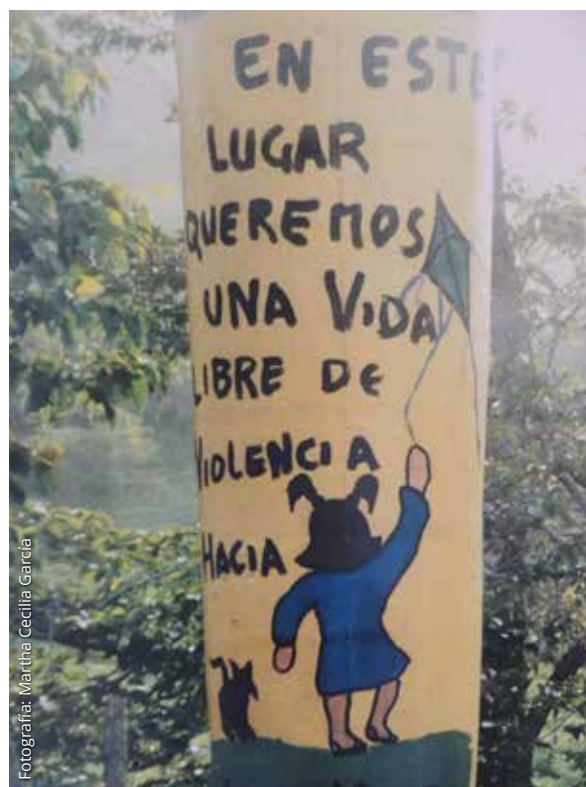 EN ESTE
LUGAR
QUEREMOS
UNA VIDA
LIBRE DE
VIOLENCIA
HACIA
Fotografía: Martha Cecilia García